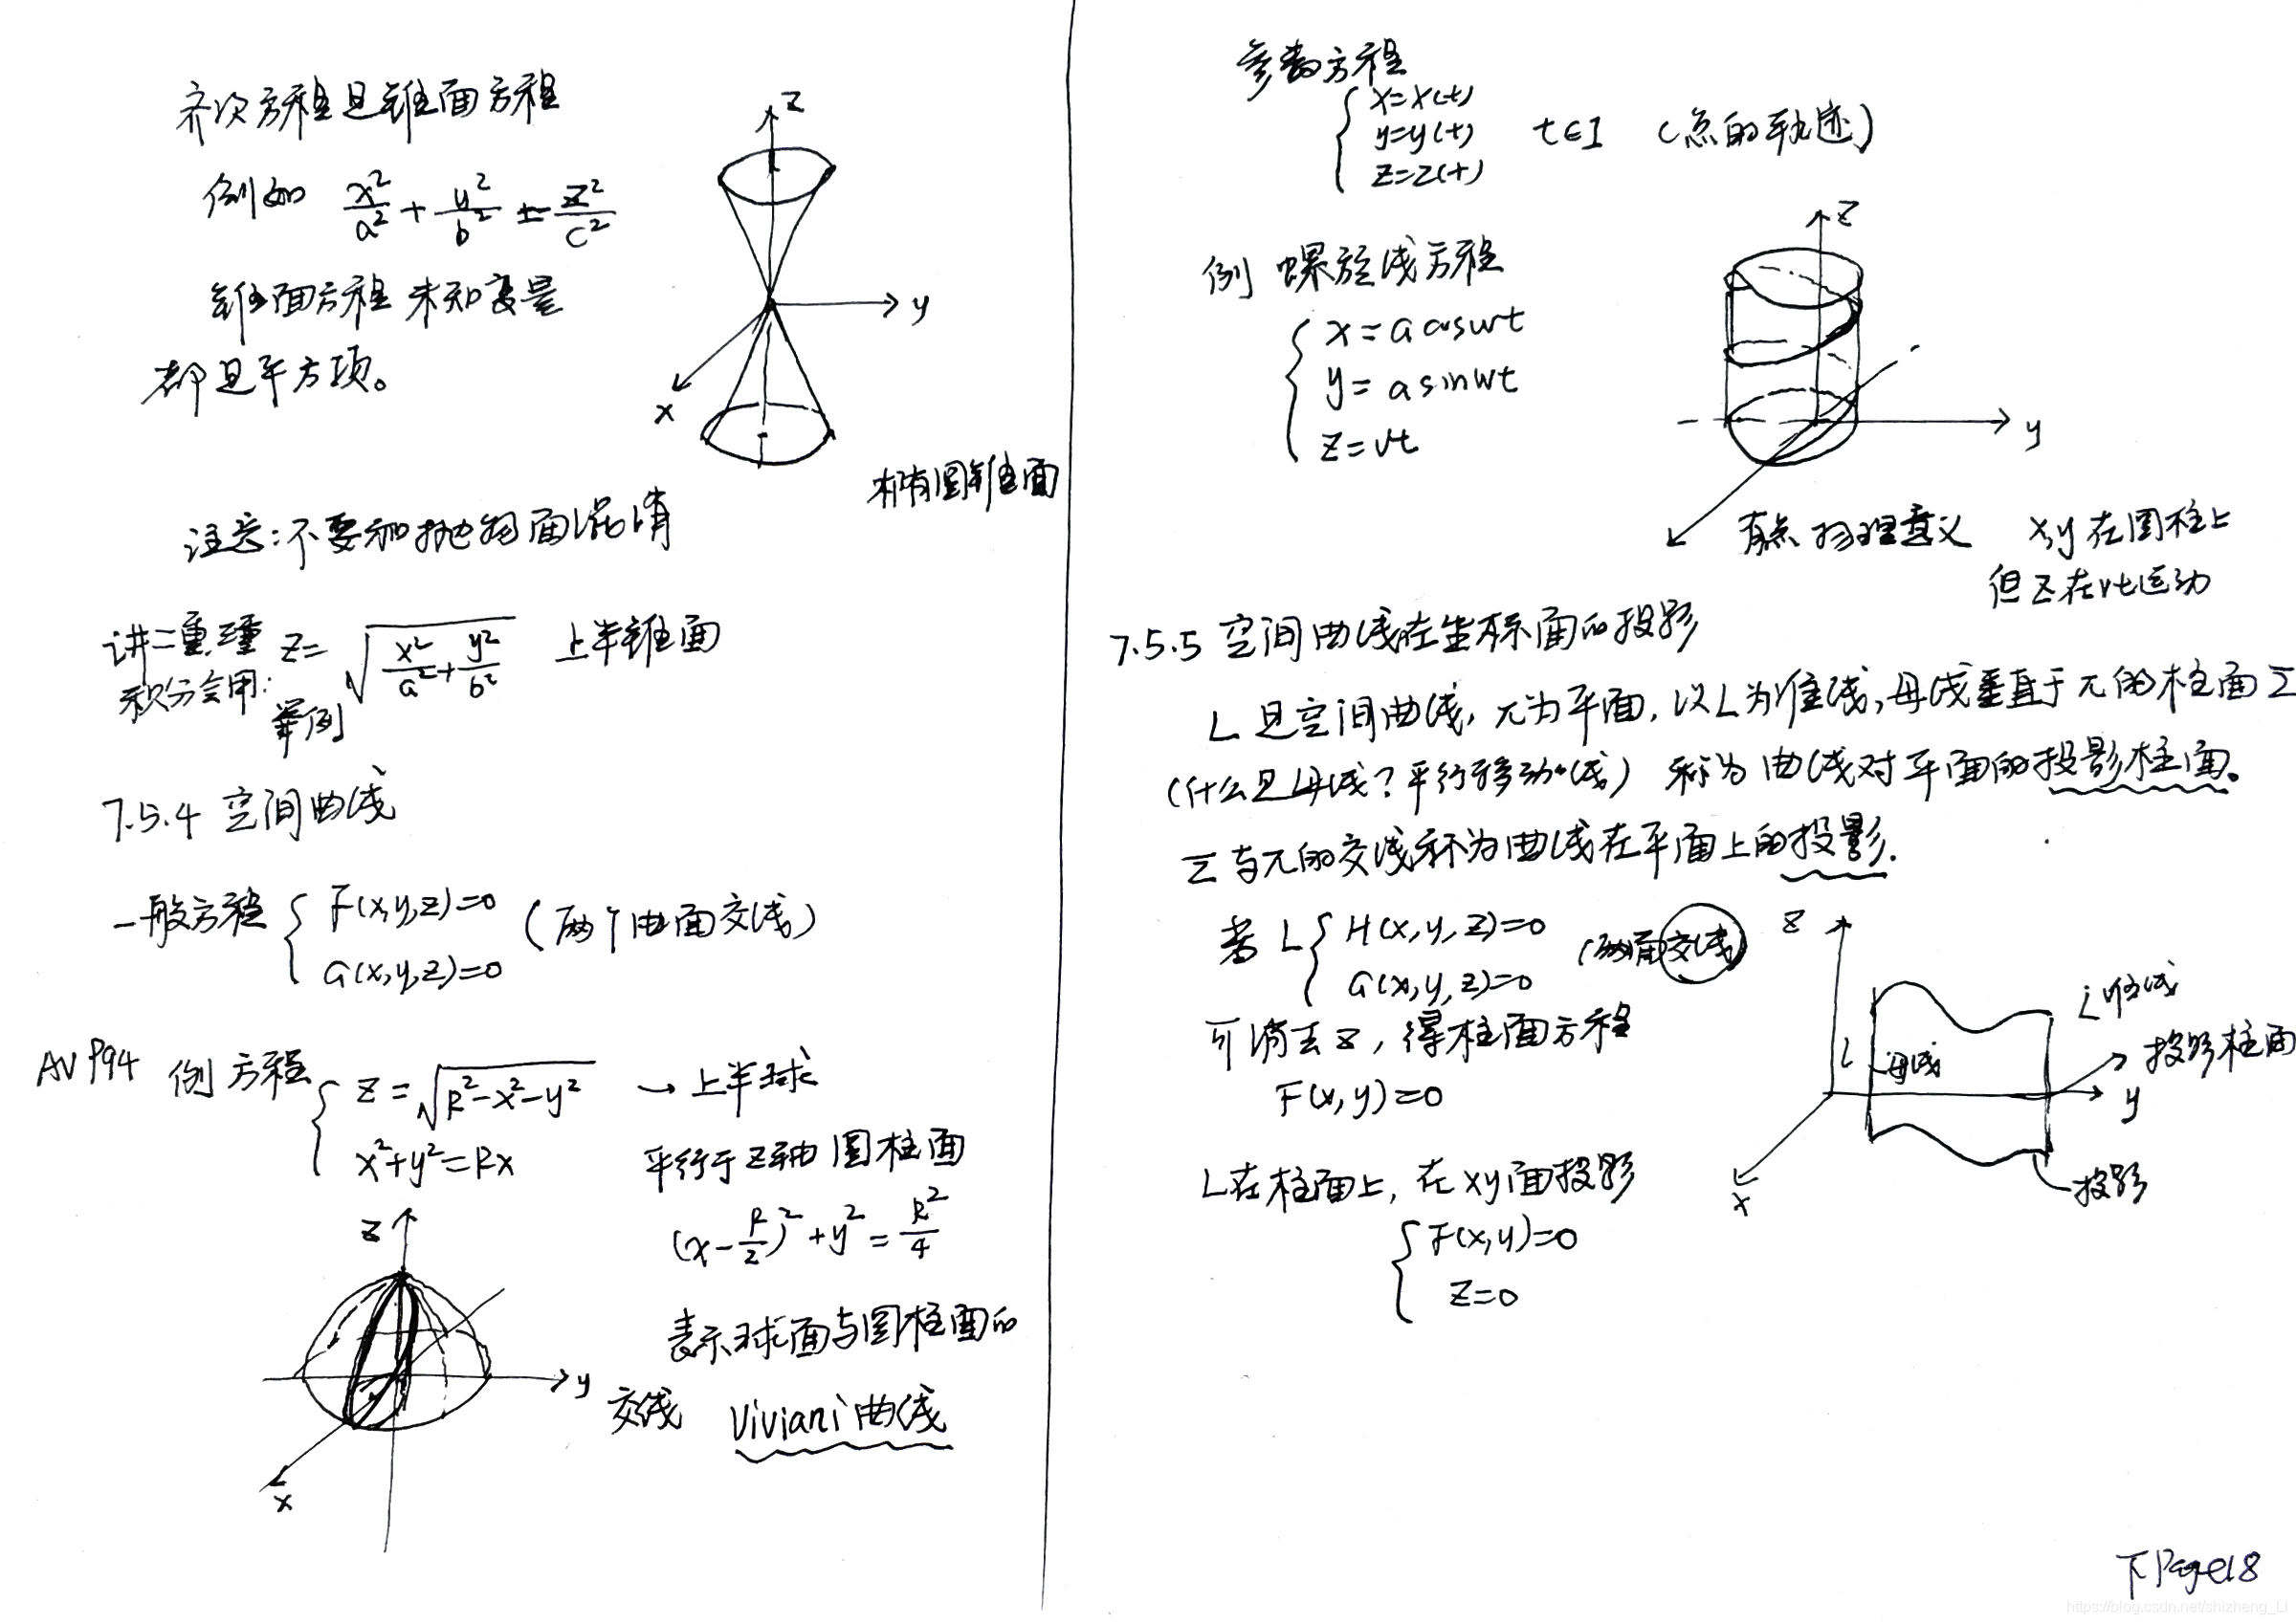 齐次方程是锥面方程
例如 x²/a² + y²/b² ± z²/c²
锥面方程未知变量
都是平方项。
z
y
x
椭圆锥面
注意:不要和抛物面混淆
讲二重,三重
积分会用:
举例
z=√(x²/a²+y²/b²) 上半锥面
7.5.4 空间曲线
一般方程 { F(x,y,z)=0
G(x,y,z)=0
(两个曲面交线)
AV P94 例 方程 { z=√(R²-x²-y²) → 上半球
x²+y²=Rx 平行于z轴圆柱面
(x-R/2)²+y²=R²/4
表示球面与圆柱面的
交线 Viviani曲线
z
y
x
参数方程
{ x=x(t)
y=y(t) t∈I (点的轨迹)
z=z(t)
例 螺旋线方程
{ x=a cosωt
y=a sinωt
z=vt
z
y
有点物理意义 x,y在圆柱上
但z在vt运动
7.5.5 空间曲线在坐标面的投影
L是空间曲线,π为平面,以L为准线,母线垂直于π的柱面Σ
(什么是母线?平行移动的线) 称为曲线对平面的投影柱面。
Σ与π的交线称为曲线在平面上的投影.
若 L { H(x,y,z)=0
G(x,y,z)=0
(两面交线)
可消去z,得柱面方程
F(x,y)=0
L在柱面上,在xy面投影
{ F(x,y)=0
z=0
z
L准线
母线
投影柱面
y
x
投影
下Page18
https://blog.csdn.net/shizheng_Li